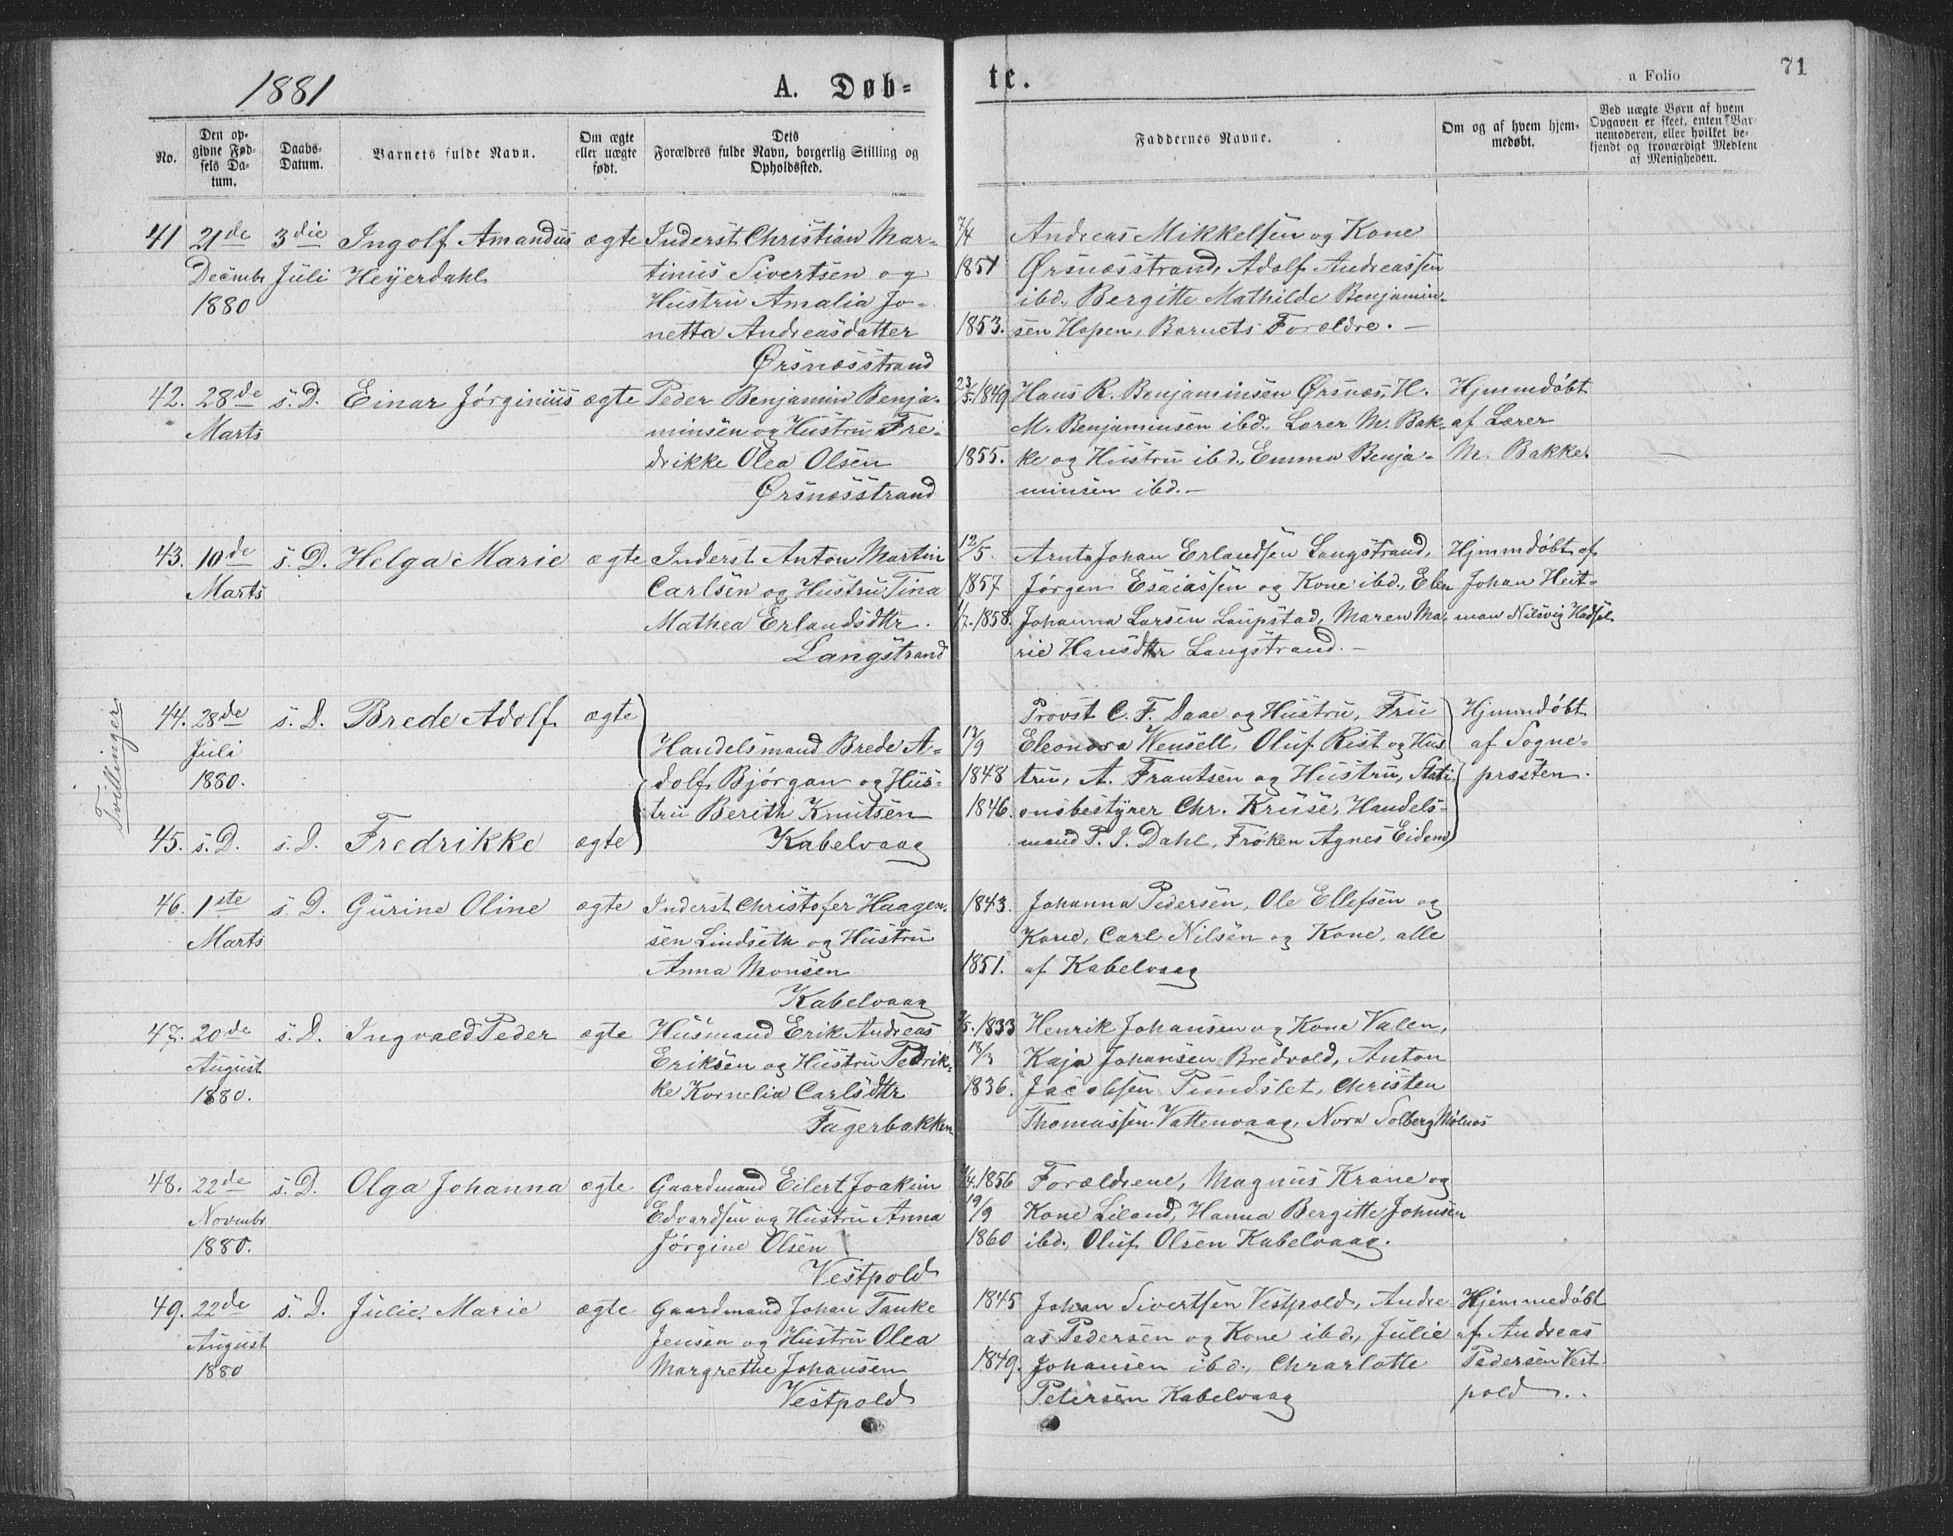 1881
A. Døb-
te.
a Folio
71
No.
Den opgivne Fødsels Datum.
Daabs-Datum.
Barnets fulde Navn.
Om ægte eller uægte født.
Dets Forældres fulde Navn, borgerlig Stilling og Opholdssted.
Faddernes Navne.
Om og af hvem hjemmedøbt.
Ved uægte Børn af hvem Opgaven er skeet, enten Barnemoderen, eller hvilket bekjendt og troværdigt Medlem af Menigheden.
41 21de 3die Ingolf Amandus ægte Inderst Christian Mar- 7/4 Andreas Mikkelsen og Kone
Decmbr Juli Heyerdahl tinus Sivertsen og 1851 Ørsnæsstrand, Adolf Andreassen
1880 Hustru Amalia Jo- ibd., Bergitte Mathilde Benjamin-
netta Andreasdatter 1853. sen Hopen, Barnets Forældre. —
Ørsnæsstrand
42. 28de s. D. Einar Jörginius ægte Peder Benjamin Benja- 23/5 1849 Hans R. Benjaminsen Ørsnæs, H. Hjmmdøbt
Marts minsen og Hustru Fre- M. Benjaminsen ibd., Lærer M. Bak- af Lærer
drikke Olea Olsen 1855. ke og Hustru ibd., Emma Benja- M. Bakke.
Ørsnæsstrand minsen ibd. —
43. 10de s. D. Helga Marie ægte Inderst Anton Martin 12/5. Arnt Johan Erlandsen Langstrand, Hjmmdøbt af
Marts Carlsen og Hustru Tina 1857 Jørgen Esaiassen og Kone ibd., Elen Johan Heit-
Mathea Erlandsdtr. 1/7 1858. Johanna Larsen Laupstad, Maren Ma- man Nilsvig Hadsel
Langstrand rie Hansdtr Langstrand. —
Tvillinger
44. 28de s. D. Brede Adolf ægte Provst C. F. Daae og Hustru, Fru Hjmmdøbt
Juli Handelsmand Brede A- 12/9 Eleonora Wensell, Oluf Rist og Hus- af Sogne-
1880. dolf Bjórgan og Hus- 1848 tru, A. Frantsen og Hustru, Stati- præsten.
tru Berith Knutsen 1846. onsbestyrer Chr. Kruse, Handels-
45. s. D. s. D. Fredrikke ægte Kabelvaag mand P. J. Dahl, Frøken Agnes Eidem
46. 1ste s. D. Gurine Oline ægte Inderst Christofer Haagen- 1843. Johanna Pedersen, Ole Ellefsen og
Marts sen Lindseth og Hustru Kone, Carl Nilsen og Kone, alle
Anna Monsen 1851. af Kabelvaag
Kabelvaag
47. 20de s. D. Ingvald Peder ægte Husmand Erik Andreas 1833 Henrik Johansen og Kone Valen,
August Eriksen og Hustru Pedrik- 18/3 Kaja Johansen Bredvold, Anton
1880. ke Kornelia Carlsdtr 1836. Jacobsen Pundslet, Christen
Fagerbakken Thomassen Vattenvaag, Nora Solberg Mølnos
48. 22de s. D. Olga Johanna ægte Gaardmand Eilert Joakim 1856 Forældrene, Magnus Krane og
Novembr Edvardsen og Hustru Anna 19/9 Kone Liland, Hanna Bergitte Johnsen
1880. Jørgine Olsen 1860 ibd., Oluf Olsen Kabelvaag.
Vestpold
49. 22de s. D. Julie Marie ægte Gaardmand Johan Tanke 1845 Johan Sivertsen Vestpold, Andre Hjemmedøbt
August Jensen og Hustru Olea as Pedersen og Kone ibd., Julie af Andreas
1880 Margrethe Johansen 1849. Johansen ibd., Chrarlotte Pedersen Vest-
Vestpold Petersen Kabelvaag pold.